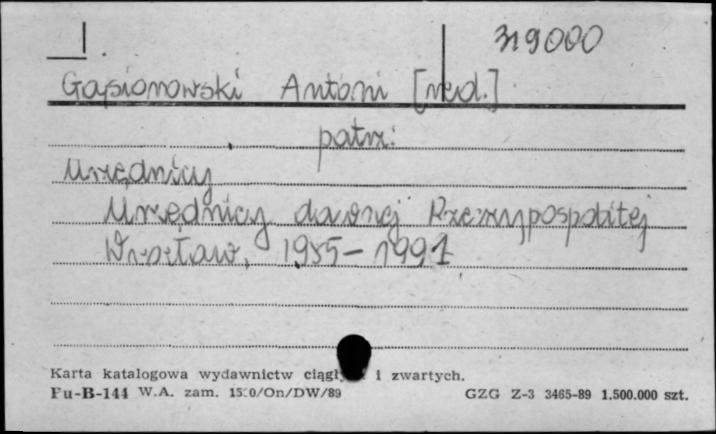 319000
Gąsiorowski Antoni [red.]
patrz:
Urzędnicy
Urzędnicy dawnej Rzeczypospolitej
Wrocław, 1985-1991
Karta katalogowa wydawnictw ciągł i zwartych.
Pu-B-144 W.A. zam. 1500/On/DW/89 GZG Z-3 3465-89 1.500.000 szt.